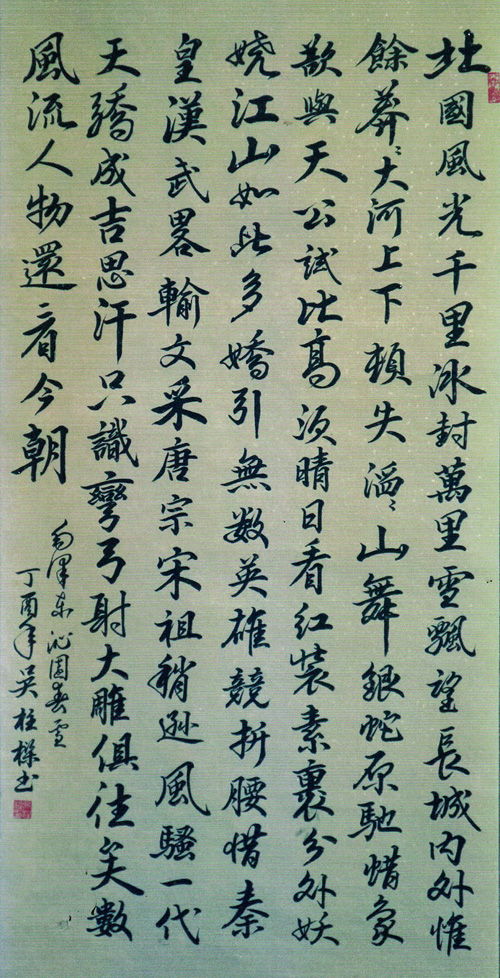 北國風光千里冰封萬里雪飄望長城内外惟
餘莽〻大河上下頓失滔〻山舞銀蛇原馳蜡象
欲與天公試比高須晴日看紅裝素裹分外妖
嬈江山如此多嬌引無数英雄競折腰惜秦
皇漢武畧輸文采唐宗宋祖稍遜風騷一代
天驕成吉思汗只識彎弓射大雕俱往矣數
風流人物還看今朝
毛澤东沁園春雪
丁酉年吴柱樑书